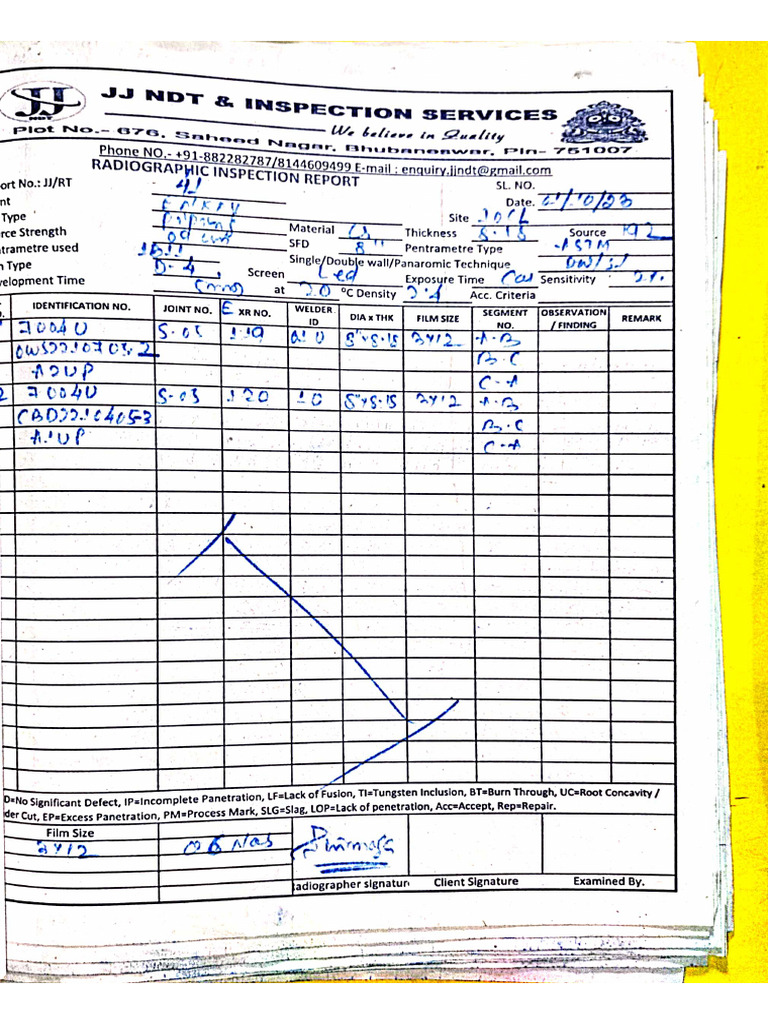 JJ NDT
JJ NDT & INSPECTION SERVICES
We believe in Quality
Plot No.- 676, Saheed Nagar, Bhubaneswar, Pin- 751007
Phone NO.- +91-882282787/8144609499 E-mail : enquiry.jjndt@gmail.com
RADIOGRAPHIC INSPECTION REPORT
SL. NO.
ort No.: JJ/RT 41
Date. /10/23
nt
Site IOCL
Type Piping
Material CS Thickness 8.18 Source 192
rce Strength
SFD 8" Pentrametre Type ASTM
ntrametre used 1B11
Single/Double wall/Panaromic Technique DW/SI
m Type D-4 Screen Led Exposure Time Sensitivity
velopment Time 5mn at 20 °C Density 2.4 Acc. Criteria
IDENTIFICATION NO. JOINT NO. EXR NO. WELDER ID DIA x THK FILM SIZE SEGMENT NO. OBSERVATION / FINDING REMARK
7004U S-05 119 3X12 A-B
B-C
A2UP C-A
2 7004U S-03 120 10 3X12 A-B
B-C
A1UP C-A
D=No Significant Defect, IP=Incomplete Panetration, LF=Lack of Fusion, TI=Tungsten Inclusion, BT=Burn Through, UC=Root Concavity /
der Cut, EP=Excess Panetration, PM=Process Mark, SLG=Slag, LOP=Lack of penetration, Acc=Accept, Rep=Repair.
Film Size
3X12 06 Nos
Radiographer signatur Client Signature Examined By.